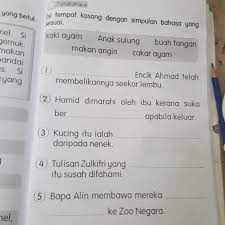 yang betul.
Isi tempat kosong dengan simpulan bahasa yang
sesuai.
kaki ayam Anak sulung buah tangan
makan angin cakar ayam
(1) Encik Ahmad telah
membelikannya seekor lembu.
(2) Hamid dimarahi oleh ibu kerana suka
ber apabila keluar.
(3) Kucing itu ialah
daripada nenek.
(4) Tulisan Zulkifri yang
itu susah difahami.
(5) Bapa Alin membawa mereka
ke Zoo Negara.
nel. Si
gemuk.
makan
pandai
s. Si
yang
nel,